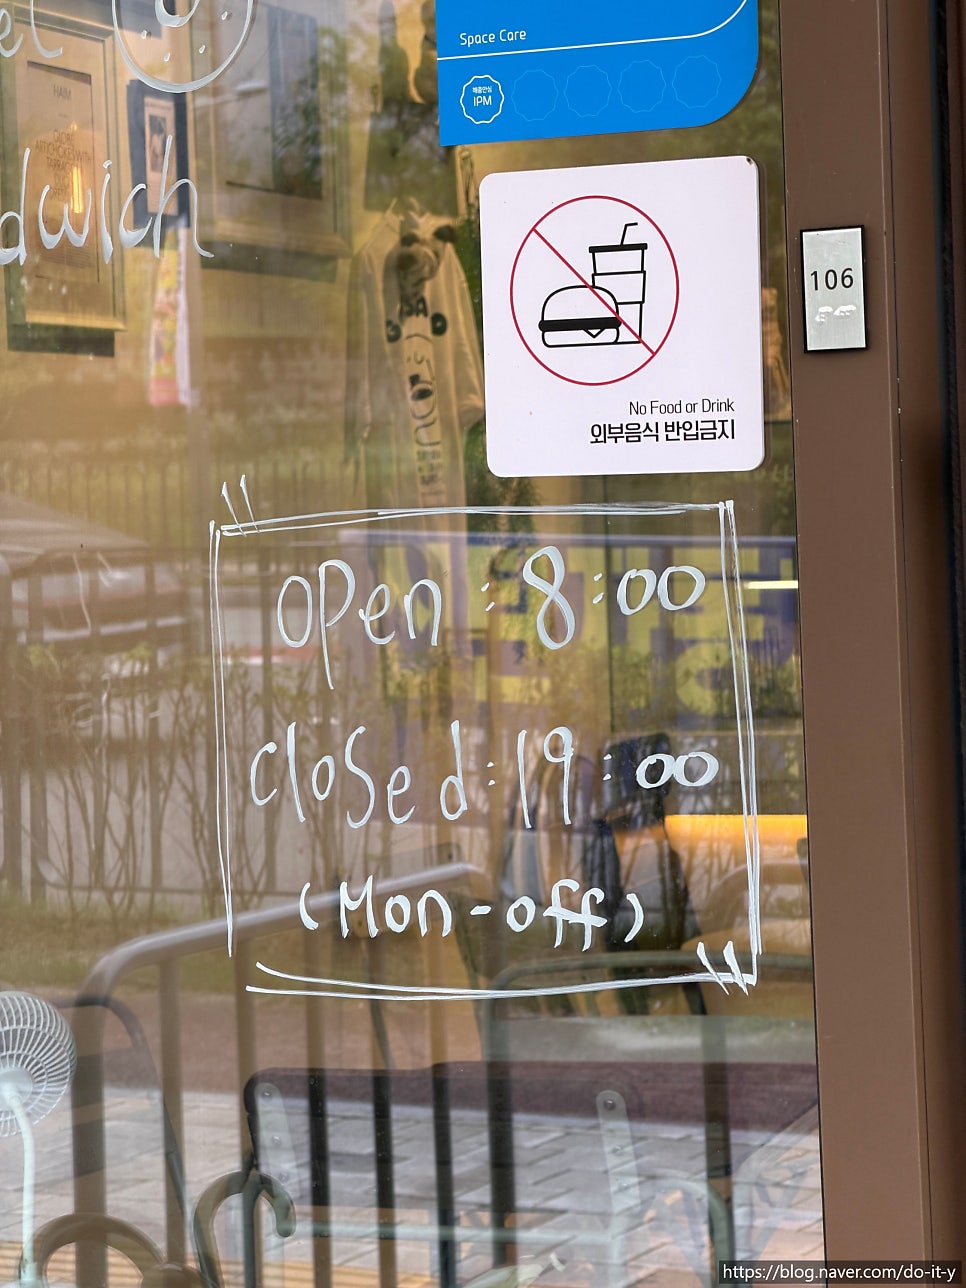 el
Space Care
해충안심
IPM
HAIM
dwich
106
No Food or Drink
외부음식 반입금지
open : 8:00
closed : 19:00
(Mon - off)
https://blog.naver.com/do-it-y